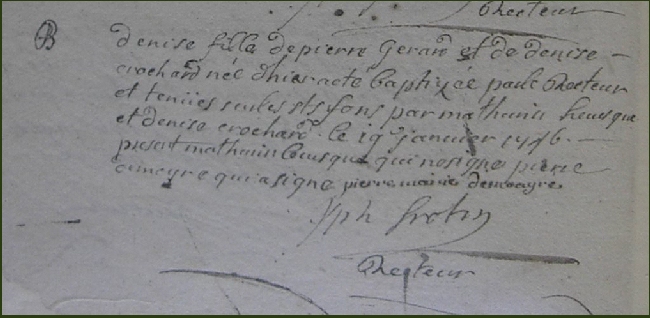 Recteur
B
denise fille de pierre Gerard et de denise
crochard née dhier a ete baptizée par le Recteur
et tenüe sur les sts fons par mathurin
et denise crochard le 19 janvier 1746
present mathurin qui ne signe pierre
qui a signe pierre marie
Jph
Recteur